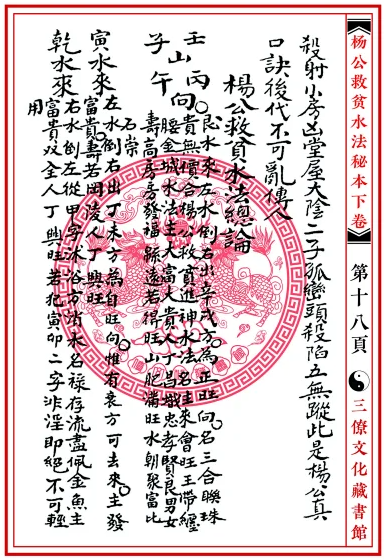 杨公救贫水法秘本下卷 第十八頁 三僚文化藏書館
殺射小房凶堂屋大陰二子孤巒頭殺陷五無蹤此是楊公真
口訣後代不可亂傳人
楊公救貧水法總論
壬山丙向
子午
艮水來左水倒右出辛戌方為正旺向名三合聯珠
貴無價合楊公救貧進神水法名主來會旺王帶纏
腰金城水法主大富大貴人丁昌熾忠孝賢良男女
壽高房房發福綿遠若得旺山肥滿旺水朝聚富比
石崇
寅水來
左水倒右出丁未方為自旺向惟有衰方可去來主發
富貴壽若岡陵人丁興旺
乾水來
右水倒左從甲字沐浴方消水名祿存流盡佩金魚主
富貴双全人丁興旺若犯寅卯二字非淫即絕不可輕
用